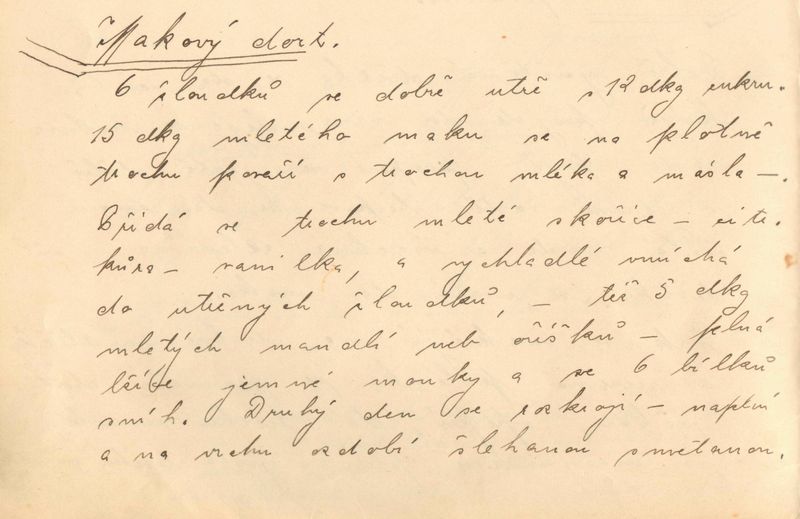 Makový dort.
6 žloudků se dobře utře s 12 dkg cukru.
15 dkg mletého maku se na plotně
trochu povaří s trochou mléka a másla –.
Přidá se trochu mleté skořice – citr.
kůra – vanilka, a vychladlé vmíchá
do utřených žloudků, – též 5 dkg
mletých mandlí neb oříšků – plná
lžíce jemné mouky a ze 6 bílků
sníh. Druhý den se rozkrojí – naplní
a na vrchu ozdobí šlehanou smetanou.